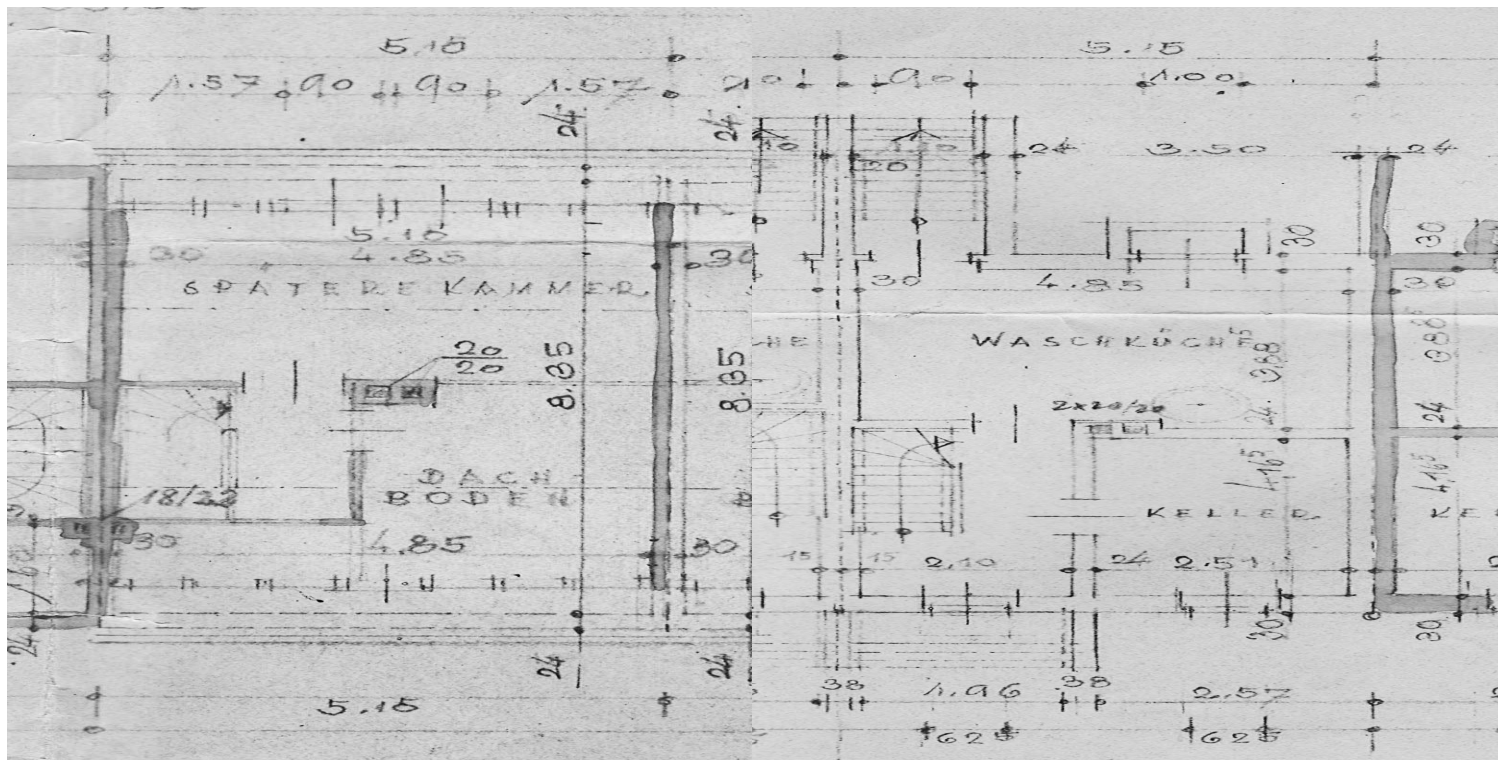 5.15
1.57 90 90 1.57
24
24
5.10
30 4.85 30
SPÄTERE KAMMER
20
20
8.35
8.35
DACH
BODEN
18/22
30 4.85 30
24
24
24
5.15
5.15
90 1.00
20 24 3.50 24
30
30
30 4.85 30
WASCHKÜCHE
3,88⁵
3,88⁵
2x20/20
24
24
4,16⁵
4,16⁵
KELLER
15 15 2.10 24 2.51
30
30
38 1.96 38 2.57
625 625